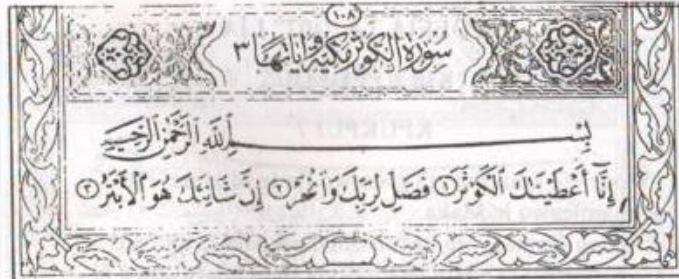 ١٠٨
سُورَةُ الْكَوْثَرِ مَكِّيَّةٌ وَآيَاتُهَا ٣
بِسْمِ اللَّهِ الرَّحْمَٰنِ الرَّحِيمِ
إِنَّآ أَعْطَيْنَٰكَ ٱلْكَوْثَرَ ١ فَصَلِّ لِرَبِّكَ وَٱنْحَرْ ٢ إِنَّ شَانِئَكَ هُوَ ٱلْأَبْتَرُ ٣